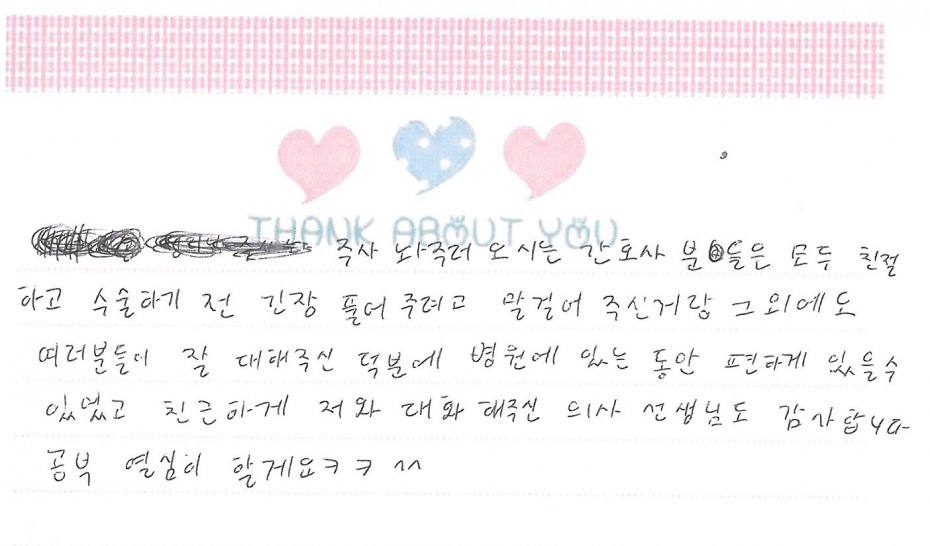 THANK ABOUT YOU
주사 놔주러 오시는 간호사 분들은 모두 친절
하고 수술하기 전 긴장 풀어 주려고 말걸어 주신거랑 그 외에도
여러분들이 잘 대해주신 덕분에 병원에 있는 동안 편하게 있을수
있었고 친근하게 저와 대화 해주신 의사 선생님도 감사합니다
공부 열심히 할게요ㅋㅋ ^^